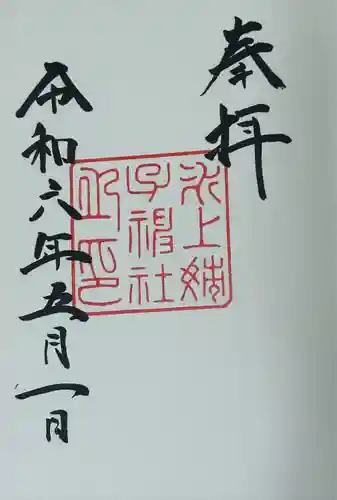 奉拝
氷上姉
子神社
之印
令和六年五月一日